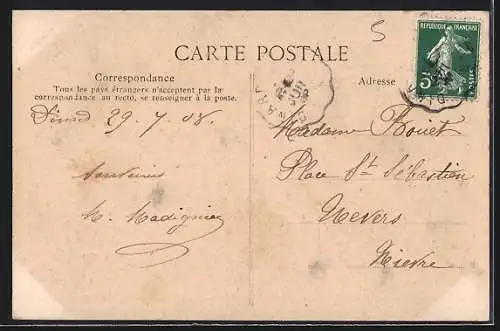 5
RÉPUBLIQUE FRANÇAISE
5c
CARTE POSTALE
Correspondance
Tous les pays étrangers n'acceptent par la
correspondance au recto, se renseigner à la poste.
Adresse
29.7.08.
Souvenirs
Madame Bouet
Place St Sébastien
Nevers
Nièvre